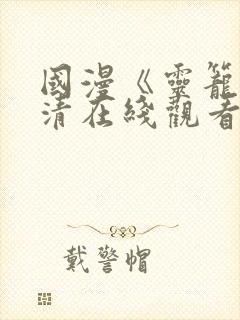 國漫《靈籠
清在綫觀看
戴警帽